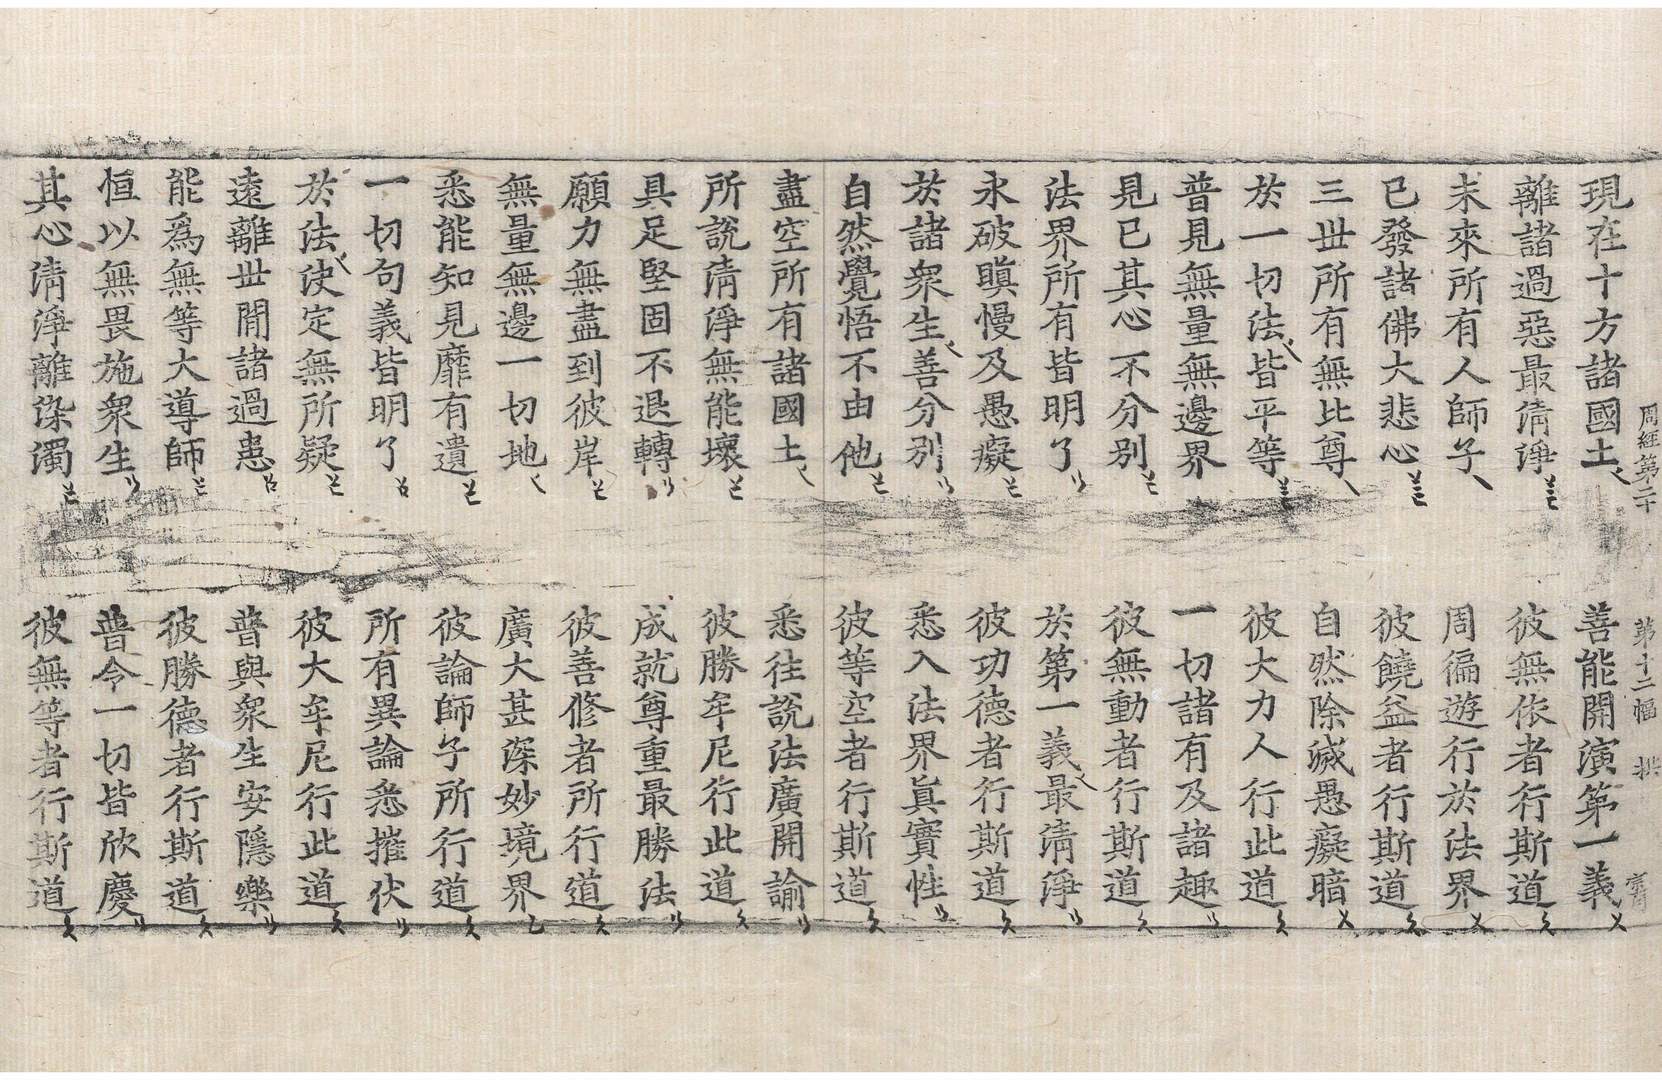 周經第二十 第十二幅
現在十方諸國土 善能開演第一義
離諸過惡最清淨 彼無依者行斯道
未來所有人師子 周徧遊行於法界
已發諸佛大悲心 彼饒益者行斯道
三世所有無比尊 自然除滅愚癡暗
於一切法皆平等 彼大力人行此道
普見無量無邊界 一切諸有及諸趣
見已其心不分別 彼無動者行斯道
法界所有皆明了 於第一義最清淨
永破瞋慢及愚癡 彼功德者行斯道
於諸衆生善分別 悉入法界眞實性
自然覺悟不由他 彼等空者行斯道
盡空所有諸國土 悉往說法廣開諭
所說清淨無能壞 彼勝牟尼行此道
具足堅固不退轉 成就尊重最勝法
願力無盡到彼岸 彼善修者所行道
無量無邊一切地 廣大甚深妙境界
悉能知見靡有遺 彼論師子所行道
一切句義皆明了 所有異論悉摧伏
於法決定無所疑 彼大牟尼行此道
遠離世閒諸過患 普與衆生安隱樂
能爲無等大導師 彼勝德者行斯道
恒以無畏施衆生 普令一切皆欣慶
其心清淨離染濁 彼無等者行斯道